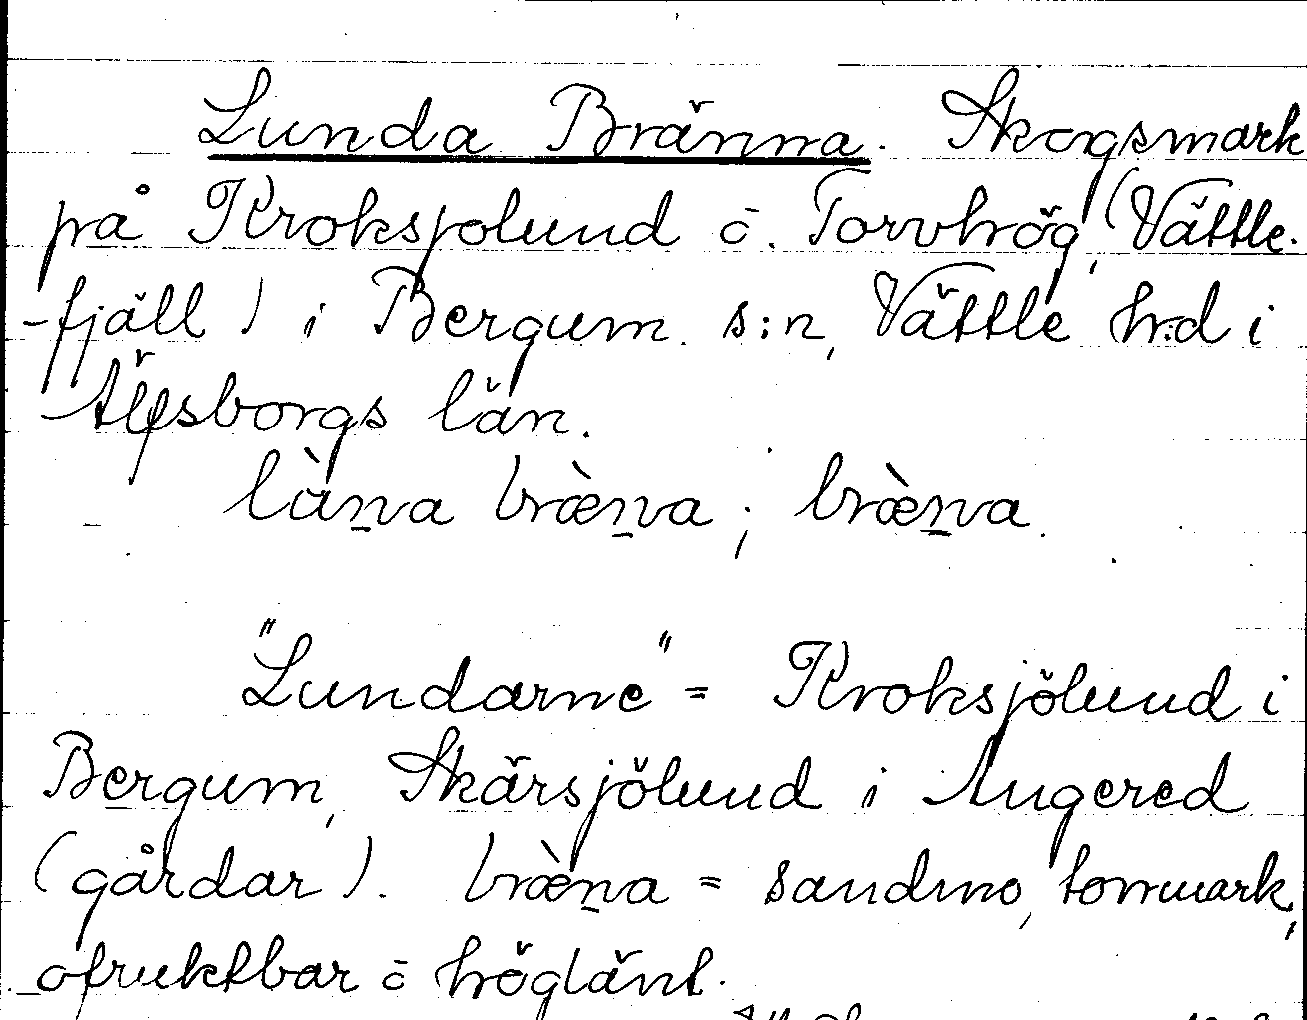 Lunda Bränna. Skogsmark
på Kroksjölund ō. Torvhög (Vättle-
-fjäll) i Bergum s:n, Vättle h:d i
Älfsborgs län.
lùn̠a bræ̀n̠a; bræ̀n̠a.
"Lundarne" = Kroksjölund i
Bergum, Skärsjölund i Angered
(gårdar). bræ̀n̠a = sandmo, torrmark,
ofruktbar ō högländ.